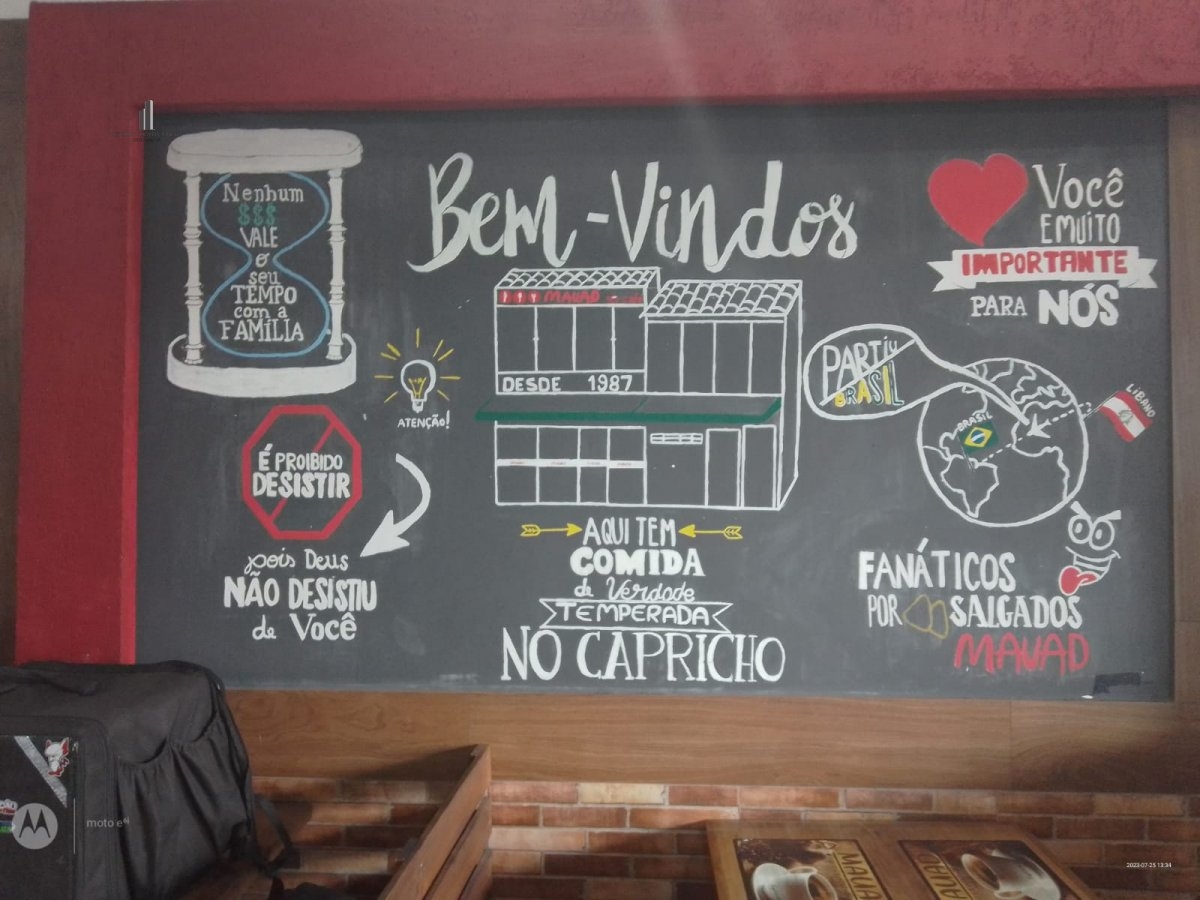 Nenhum
$$$
VALE
o
seu
TEMPO
com a
FAMÍLIA
Bem-Vindos
Você
E MUITO
IMPORTANTE
PARA NÓS
MAUAD
DESDE 1987
PARTIU
BRASIL
BRASIL
LÍBANO
ATENÇÃO!
É PROIBIDO
DESISTIR
pois Deus
NÃO DESISTIU
de Você
AQUI TEM
COMIDA
de Verdade
TEMPERADA
NO CAPRICHO
FANÁTICOS
POR SALGADOS
MAUAD
moto e⁶ⁱ
2023-07-25 13:34